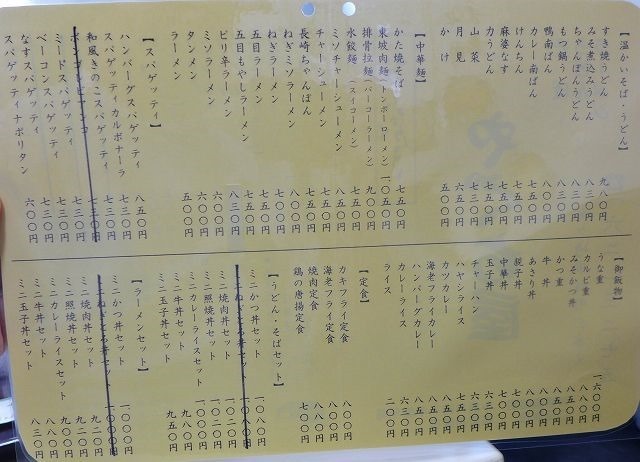 【温かいそば・うどん】
すき焼うどん 九八〇円
みそ煮込みうどん 八三〇円
ちゃんぽんうどん 八三〇円
もつ鍋うどん 八三〇円
鴨南ばん 八〇〇円
カレー南ばん 七五〇円
けんちん 七五〇円
麻婆なす 七五〇円
力うどん 七五〇円
山菜 七五〇円
月見 六五〇円
かけ 五五〇円
【中華麺】
かた焼そば 七五〇円
東坡肉麺(トンポーローメン) 一〇五〇円
排骨拉麺(パーコーラーメン) 九〇〇円
水餃麺(スイコーメン) 七五〇円
ミソチャーシューメン 八五〇円
チャーシューメン 七五〇円
長崎ちゃんぽん 七五〇円
ねぎミソラーメン 八〇〇円
ねぎラーメン 七〇〇円
五目ラーメン 七五〇円
五目もやしラーメン 七五〇円
ピリ辛ラーメン 八三〇円
ミソラーメン 六〇〇円
タンメン 六〇〇円
ラーメン 五〇〇円
【スパゲッティ】
ハンバーグスパゲッティ 八五〇円
スパゲッティカルボナーラ 七三〇円
和風きのこスパゲッティ 七三〇円
ボンゴレビアンコ 七三〇円
ミートスパゲッティ 七三〇円
ベーコンスパゲッティ 七三〇円
なすスパゲッティ 七三〇円
スパゲッティナポリタン 六〇〇円
【御飯物】
うな重 一六〇〇円
カルビ重 八八〇円
みそかつ丼 八五〇円
かつ重 八五〇円
牛丼 八〇〇円
あさり丼 八〇〇円
親子丼 七〇〇円
中華丼 七〇〇円
玉子丼 六三〇円
チャーハン 六三〇円
ハヤシライス 七五〇円
カツカレー 八五〇円
海老フライカレー 八五〇円
ハンバーグカレー 八五〇円
カレーライス 六三〇円
ライス 二〇〇円
【定食】
カキフライ定食 八〇〇円
海老フライ定食 八八〇円
焼肉定食 八〇〇円
鶏の唐揚定食 七〇〇円
【うどん・そばセット】
ミニかつ丼セット 一〇八〇円
ミニねぎとろ丼セット 一〇八〇円
ミニ焼肉丼セット 一〇二〇円
ミニ照焼丼セット 一〇二〇円
ミニカレーライスセット 一〇〇〇円
ミニ牛丼セット 九八〇円
ミニ玉子丼セット 九五〇円
【ラーメンセット】
ミニかつ丼セット 一〇〇〇円
ミニねぎとろ丼セット 一〇〇〇円
ミニ焼肉丼セット 九二〇円
ミニ照焼丼セット 九二〇円
ミニカレーライスセット 九〇〇円
ミニ牛丼セット 八八〇円
ミニ玉子丼セット 八三〇円